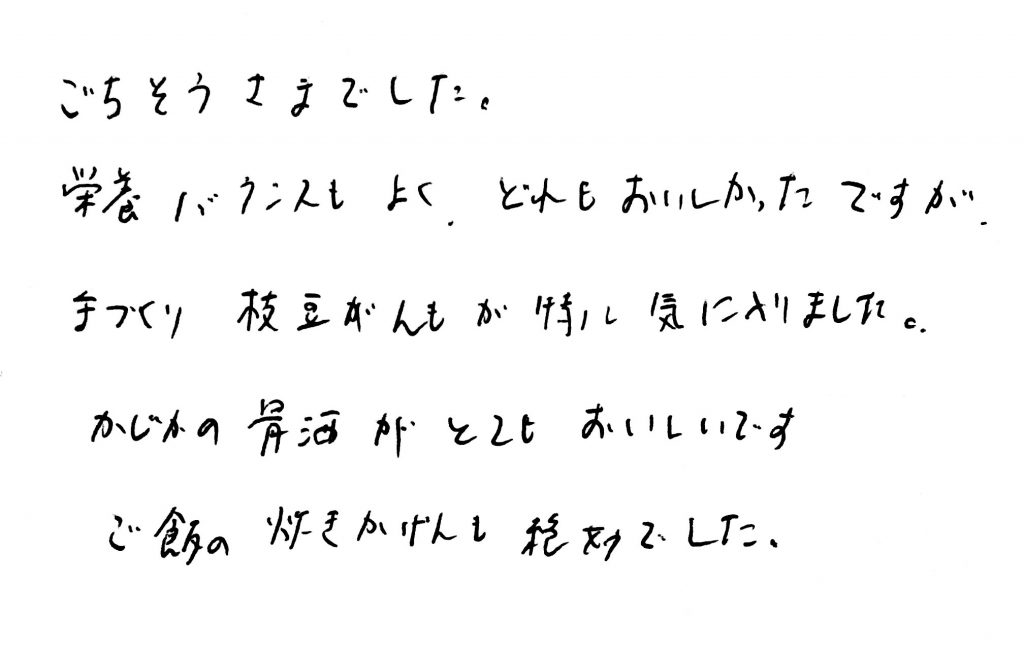 ごちそうさまでした。
栄養バランスもよく、どれもおいしかったですが、
手づくり枝豆がんもが特に気に入りました。
かじかの骨酒がとてもおいしいです
ご飯の炊きかげんも絶妙でした。